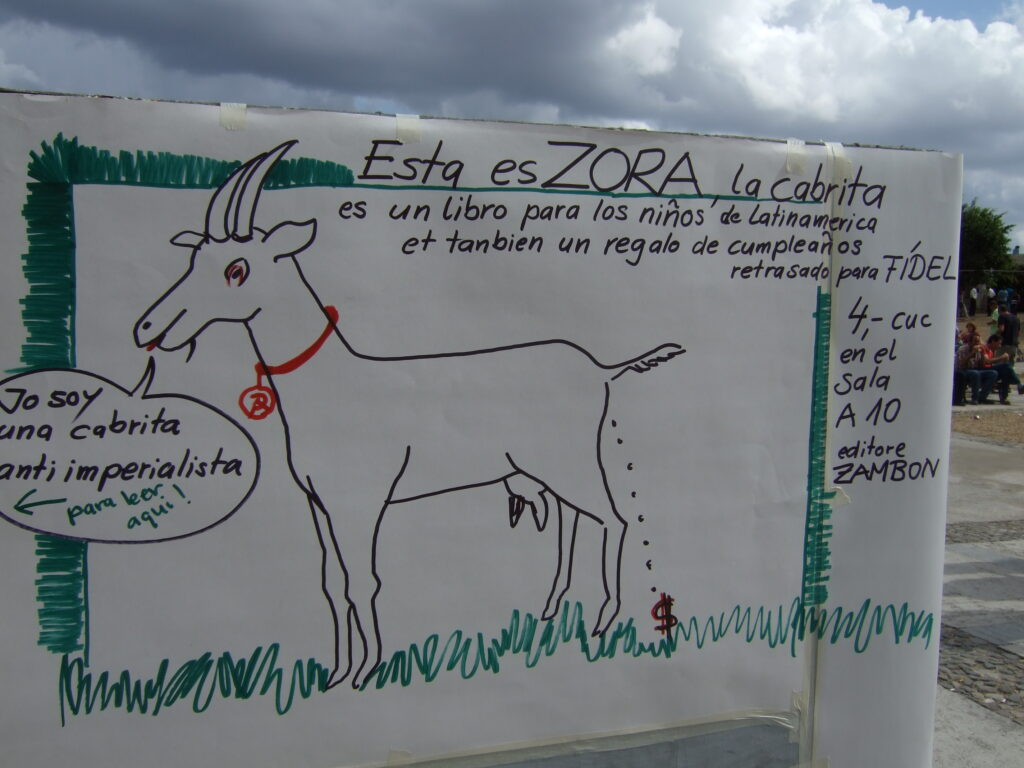 Esta es ZORA, la cabrita
es un libro para los niños de Latinamerica
et tanbien un regalo de cumpleaños
retrasado para FÍDEL
4,- cuc
en el
Sala
A 10
editore
ZAMBON
Jo soy
una cabrita
anti imperialista
para leer
aqui!
$